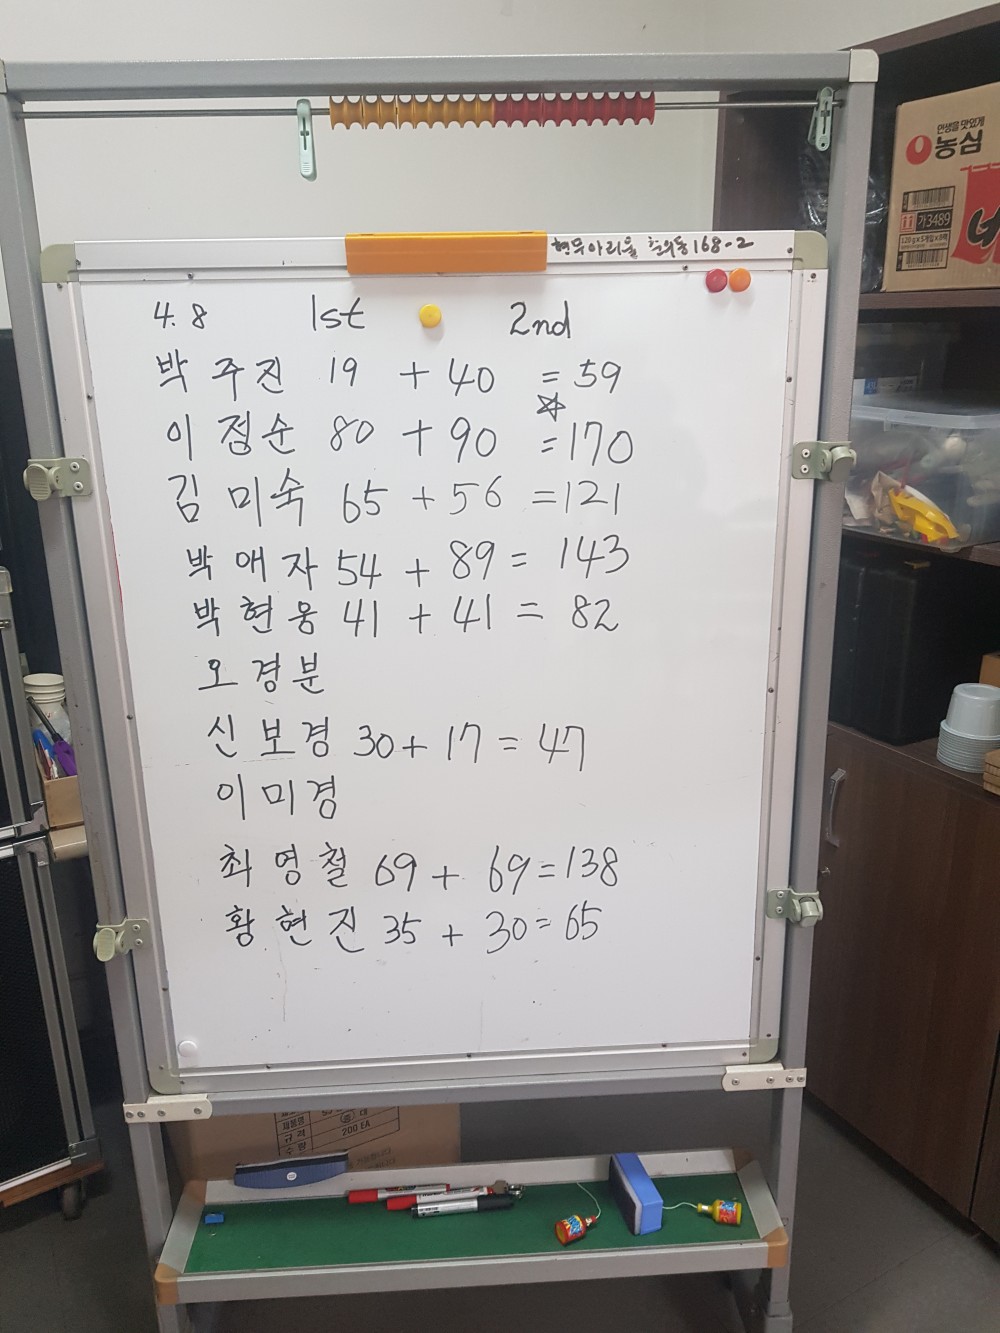 인생을 맛있게
농심
가3489
120g x 5개입 x 8팩
너
현무아리울 168-2
4.8 1st 2nd
박주진 19 + 40 = 59
☆
이정순 80 + 90 = 170
김미숙 65 + 56 = 121
박애자 54 + 89 = 143
박현웅 41 + 41 = 82
오경분
신보경 30 + 17 = 47
이미경
최영철 69 + 69 = 138
황현진 35 + 30 = 65
제품명
규격
수량 200 EA